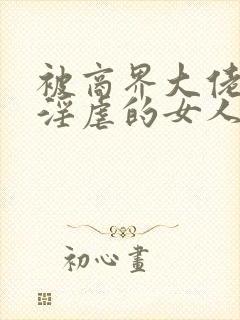 被商界大佬
淫虐的女人
初心畫